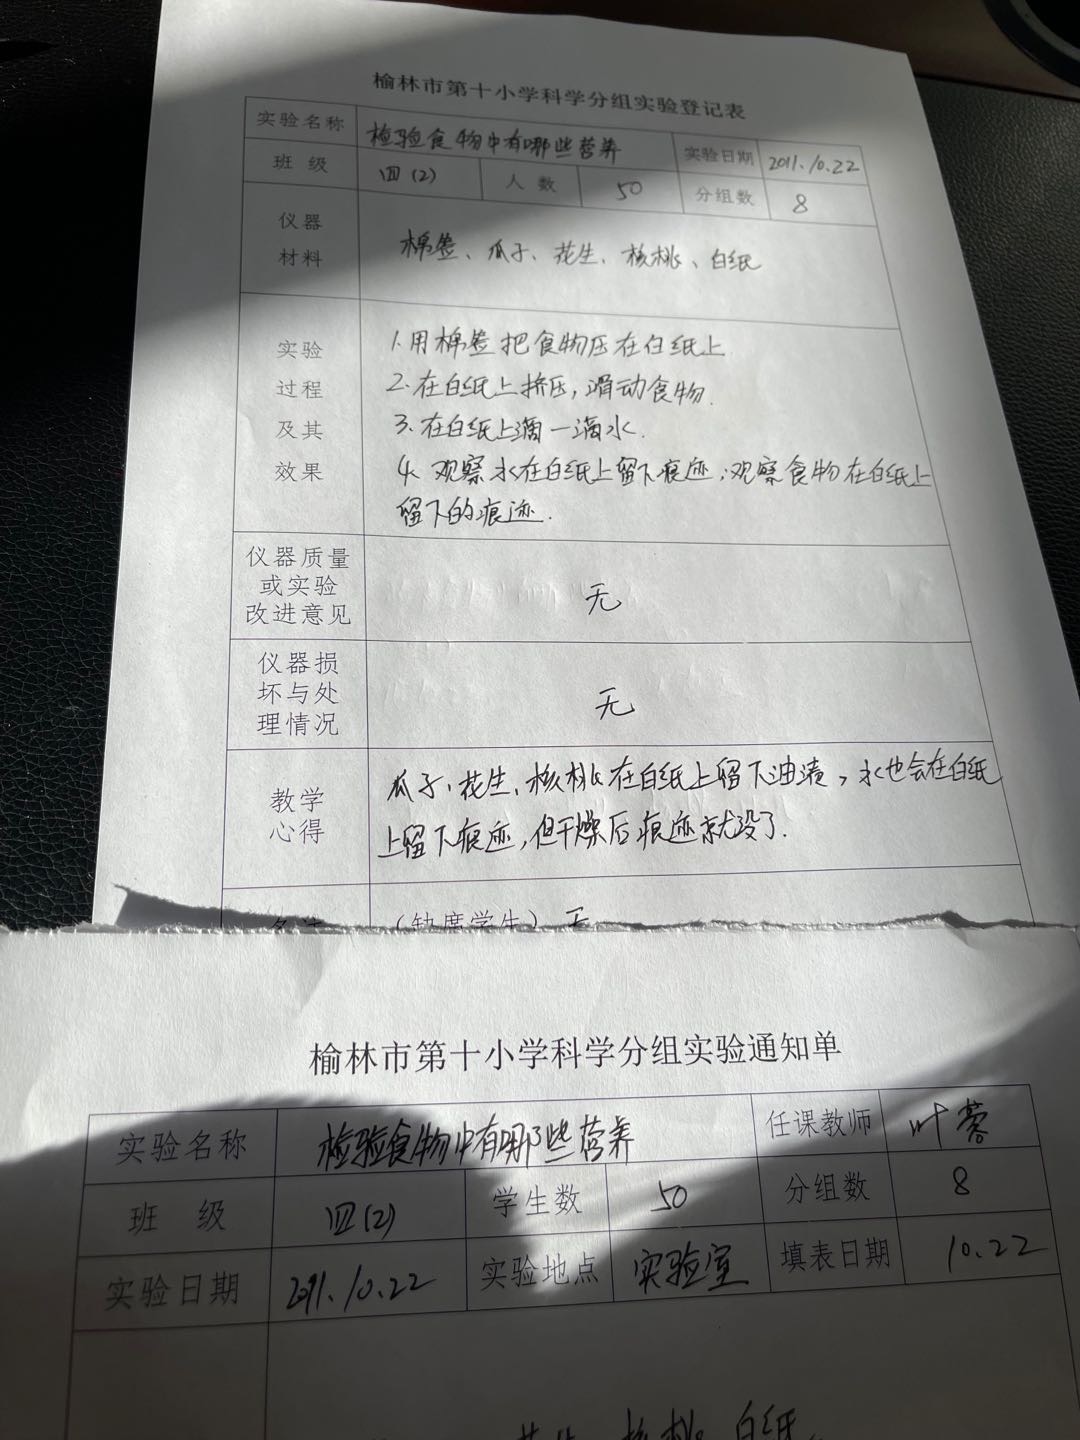 榆林市第十小学科学分组实验登记表
实验名称 检验食物中有哪些营养 实验日期 2011.10.22
班级 四(2) 人数 50 分组数 8
仪器
材料
棉签、瓜子、花生、核桃、白纸
实验
过程
及其
效果
1.用棉签把食物压在白纸上
2.在白纸上挤压,滑动食物.
3.在白纸上滴一滴水.
4.观察水在白纸上留下痕迹;观察食物在白纸上
留下的痕迹.
仪器质量
或实验
改进意见
无
仪器损
坏与处
理情况
无
教学
心得
瓜子、花生、核桃在白纸上留下油渍,水也会在白纸
上留下痕迹,但干燥后痕迹就没了.
(缺席学生) 无
榆林市第十小学科学分组实验通知单
实验名称 检验食物中有哪些营养 任课教师 叶蓉
班级 四(2) 学生数 50 分组数 8
实验日期 2011.10.22 实验地点 实验室 填表日期 10.22
花生、核桃、白纸